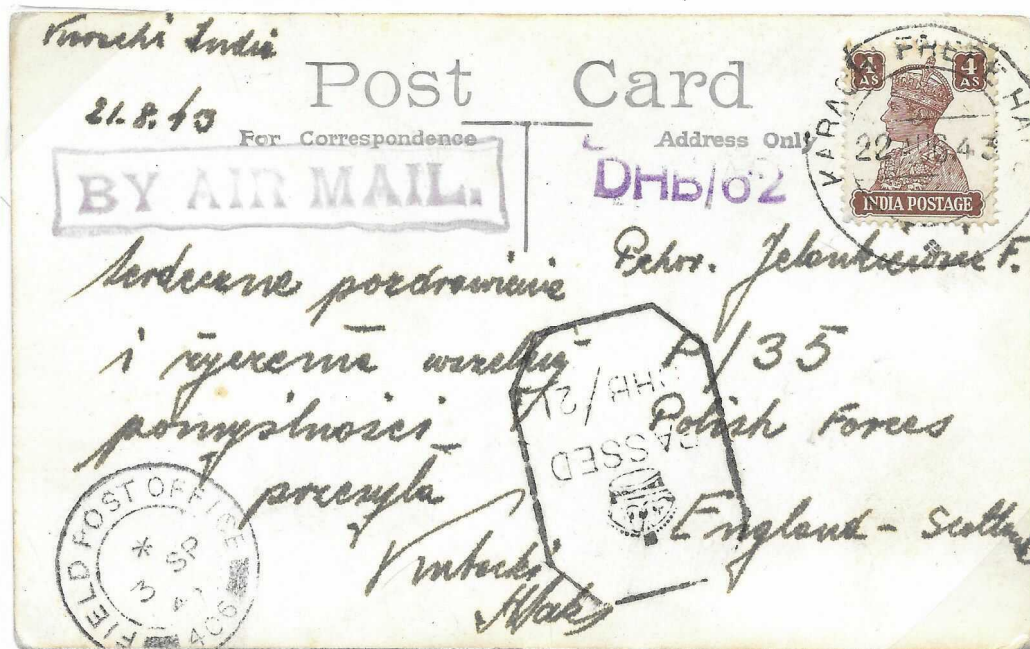 Karachi India
21.8.43
Post Card
For Correspondence
Address Only
BY AIR MAIL.
DHB/62
4 AS
4 AS
INDIA POSTAGE
KARACHI FRERE HA
22 43
Serdeczne pozdrowienia
i życzenia wszelkiej
pomyślności
przesyła
Pchor. F.
P/35
Polish Forces
England - Scotland
DHB/21
PASSED
FIELD POST OFFICE
3 SP
406